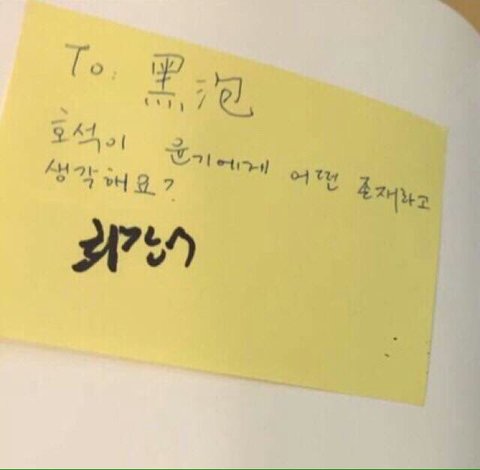 To: 黑泡
호석이 윤기에게 어떤 존재라고
생각해요?